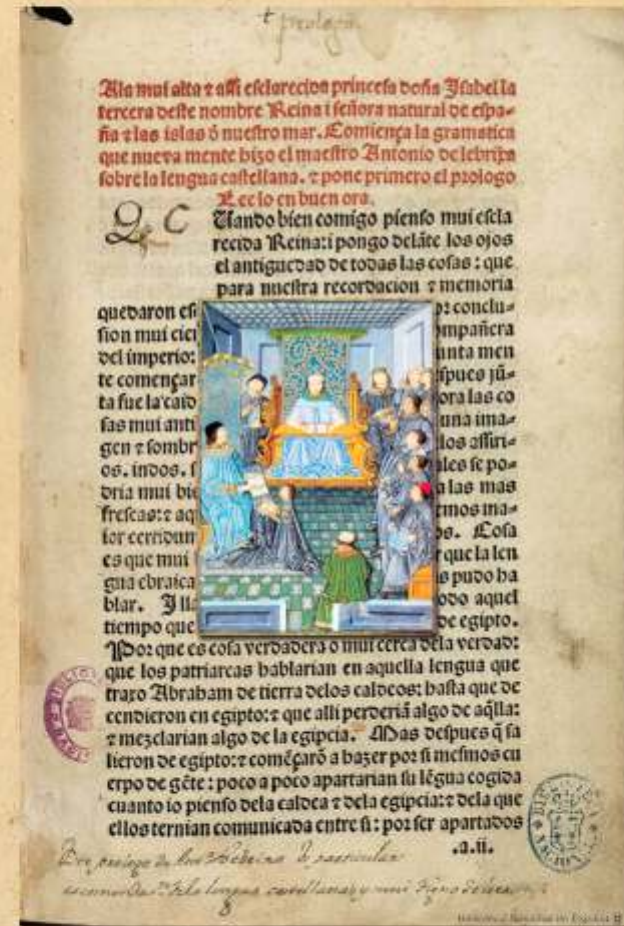 prologo.
Ala mui alta ⁊ assi esclarecida princesa doña Isabel la
tercera deste nombre Reina i señora natural de espa-
ña ⁊ las islas d̄ nuestro mar. Comiença la gramatica
que nueva mente hizo el maestro Antonio de lebrixa
sobre la lengua castellana. ⁊ pone primero el prologo
Lee lo en buen ora.
C Uando bien comigo pienso mui escla
recida Reina: i pongo delãte los ojos
el antiguedad de todas las cosas: que
para nuestra recordacion ⁊ memoria
quedaron es por conclu-
sion mui cier ompañera
del imperio: unta men
te començar spues jũ-
ta fue la caid ora las co
sas mui anti una ima-
gen ⁊ sombr los assiri-
os. indos. s ales se po-
dria mui bie a las mas
frescas: ⁊ aq emos ma-
ior certidum os. Cosa
es que mui r que la len
gua ebraica s pudo ha
blar. I lla odo aquel
tiempo que de egipto.
Por que es cosa verdadera o mui cerca dela verdad:
que los patriarcas hablarian en aquella lengua que
traxo Abraham de tierra delos caldeos: hasta que de
cendieron en egipto: ⁊ que alli perderiã algo de aq̃lla:
⁊ mezclarian algo de la egipcia. Mas despues q̃ sa
lieron de egipto: ⁊ comẽçarõ a hazer por si mesmos cu
erpo de gẽte: poco a poco apartarian su lẽgua cogida
cuanto io pienso dela caldea ⁊ dela egipcia: ⁊ dela que
ellos ternian comunicada entre si: por ser apartados
.a.ii.
prologo de
lengua castellana y mui
Biblioteca Nacional de España